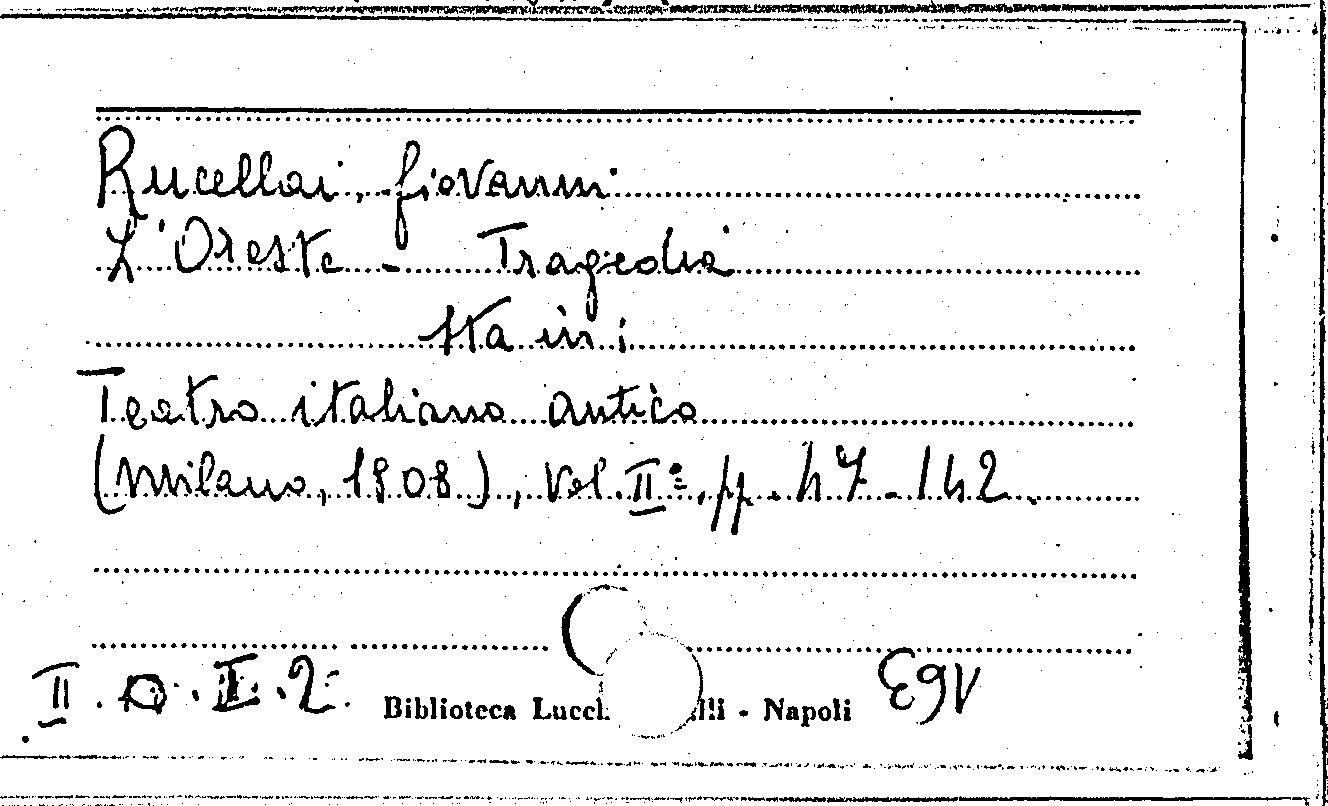 Rucellai, Giovanni
L'Oreste - Tragedia
sta in:
Teatro italiano antico
(Milano, 1808), vol. IIº, pp. 47-142.
II. Q. I. 2. Biblioteca Lucch lli - Napoli EgV